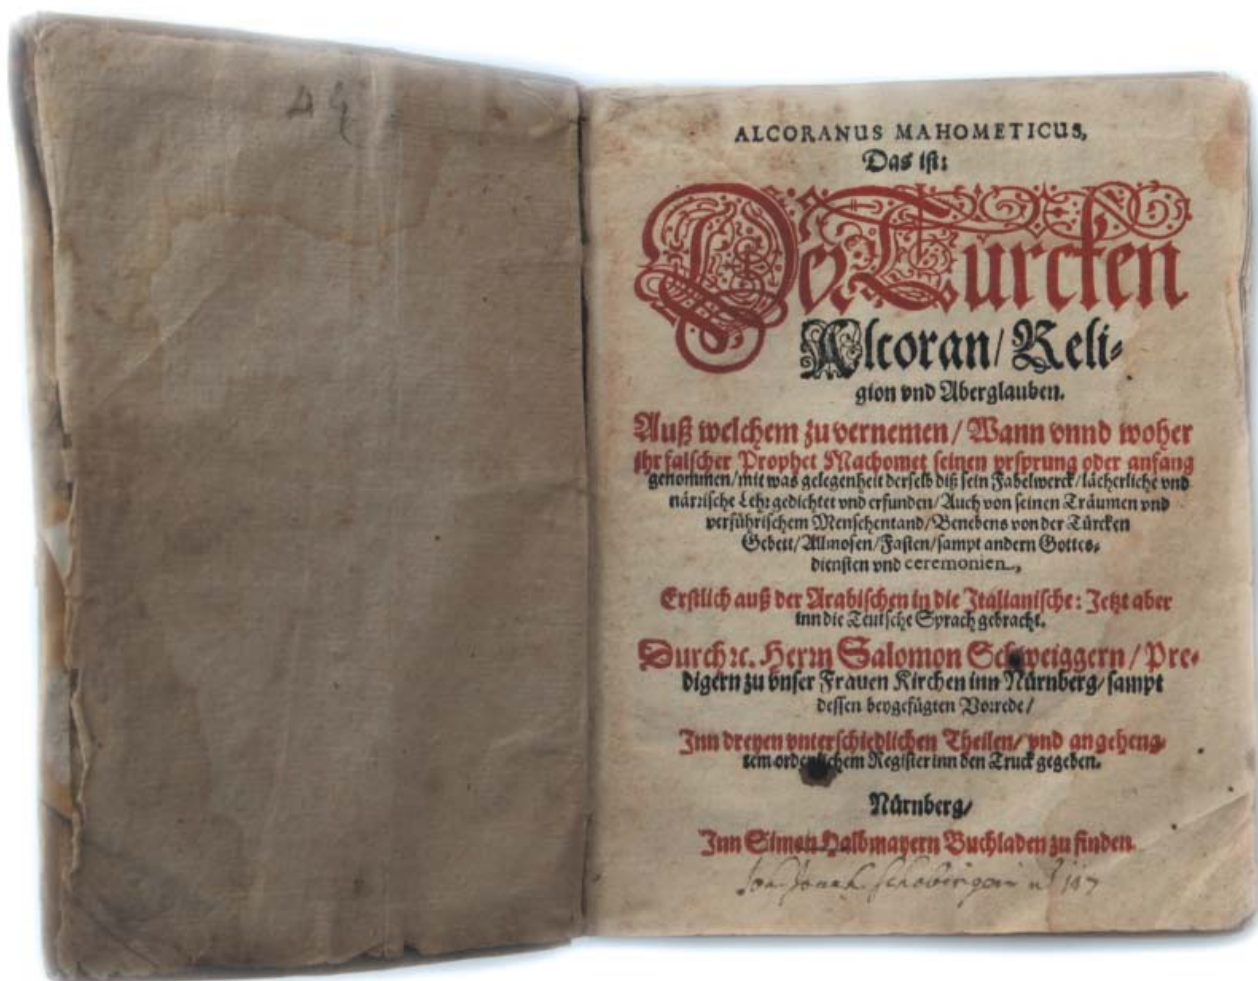 ALCORANUS MAHOMETICUS,
Das ist:
Der Türcken
Alcoran/ Reli-
gion vnd Aberglauben.
Auß welchem zu vernemen/ Wann vnnd woher
ihr falscher Prophet Machomet seinen vrsprung oder anfang
genommen/ mit was gelegenheit derselb diß sein Fabelwerck/ lächerliche vnd
närrische Lehr gedichtet vnd erfunden/ Auch von seinen Träumen vnd
verführischem Menschentand/ Benebens von der Türcken
Gebett/ Allmosen/ Fasten/ sampt andern Gottes-
diensten vnd ceremonien.
Erstlich auß der Arabischen in die Italianische: Jetzt aber
inn die Teutsche Sprach gebracht.
Durch ꝛc. Herrn Salomon Schweiggern/ Pre-
digern zu vnser Frauen Kirchen inn Nürnberg/ sampt
dessen beygefügten Vorrede/
Inn dreyen vnterschiedlichen Theilen/ vnd angeheng-
tem ordenlichem Register inn den Truck gegeben.
Nürnberg/
Inn Simon Halbmayern Buchladen zu finden.